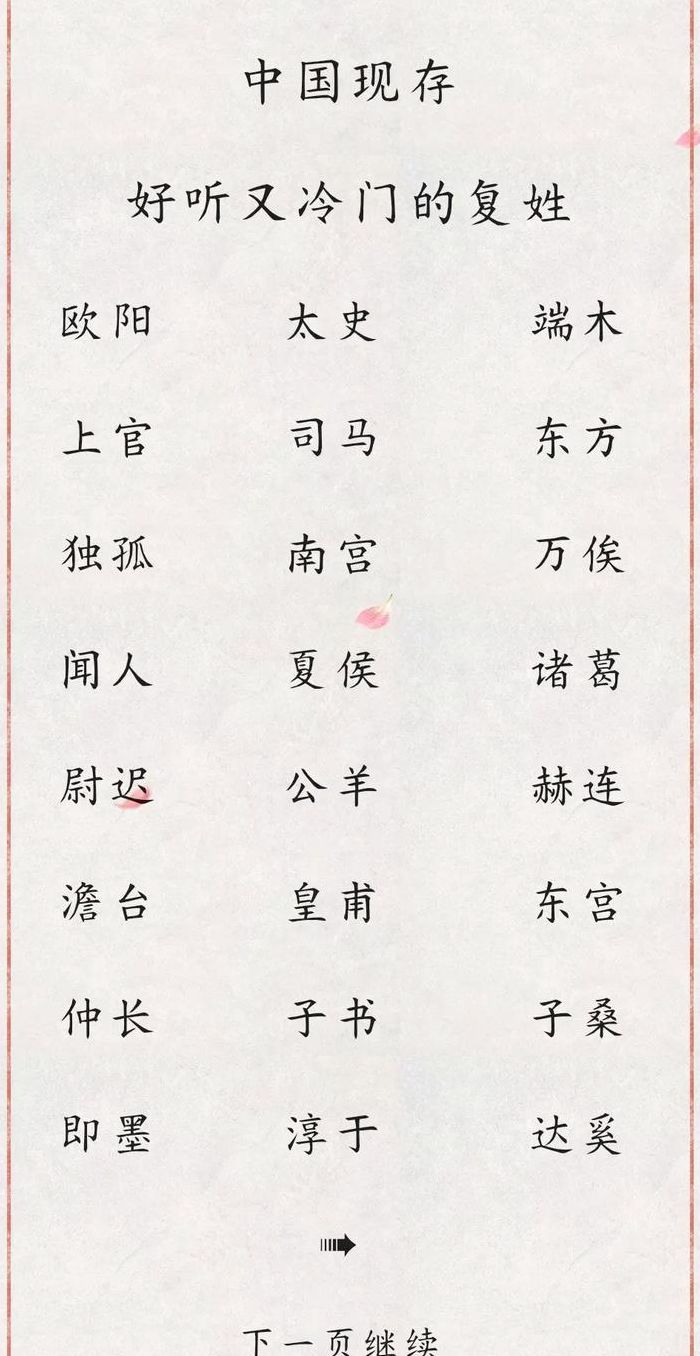 中国现存
好听又冷门的复姓
欧阳 太史 端木
上官 司马 东方
独孤 南宫 万俟
闻人 夏侯 诸葛
尉迟 公羊 赫连
澹台 皇甫 东宫
仲长 子书 子桑
即墨 淳于 达奚
下一页继续